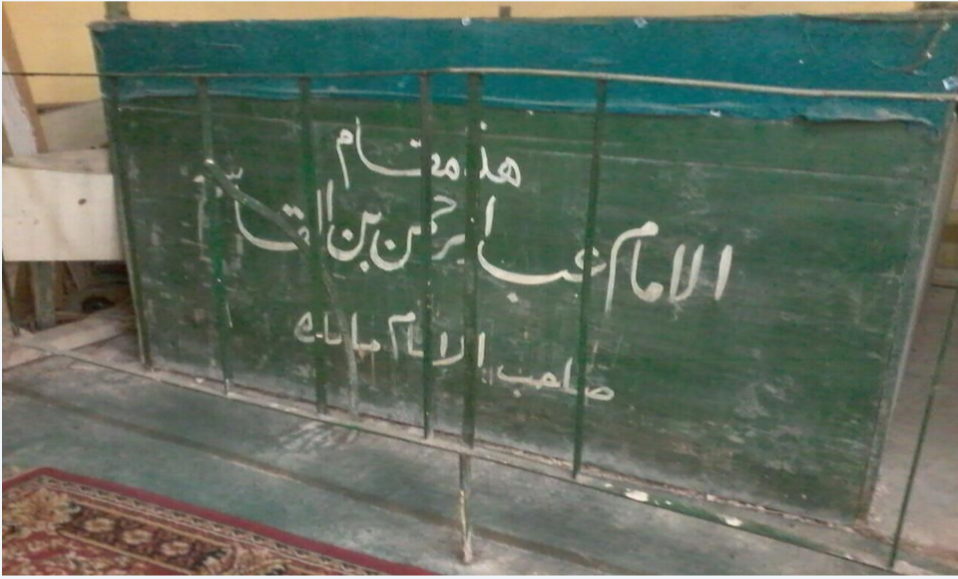 هذ مقام
الامام عبد الرحمن بن القاسم
صاحب الامام مالك